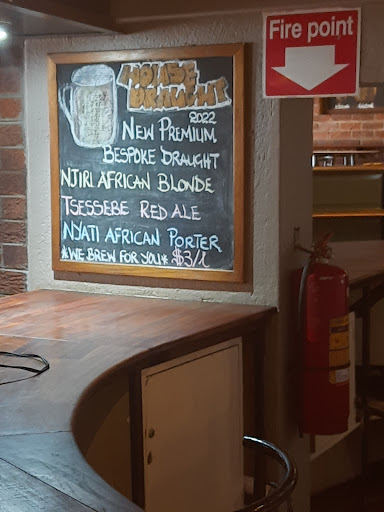 HOUSE
DRAUGHT
2022
NEW PREMIUM
BESPOKE DRAUGHT
NJIRI AFRICAN BLONDE
TSESSEBE RED ALE
NYATI AFRICAN PORTER
*WE BREW FOR YOU* $3/L
Fire point